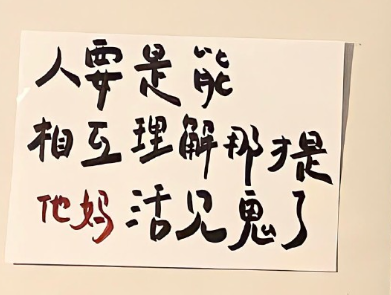 人要是能
相互理解那才是
他妈活见鬼了